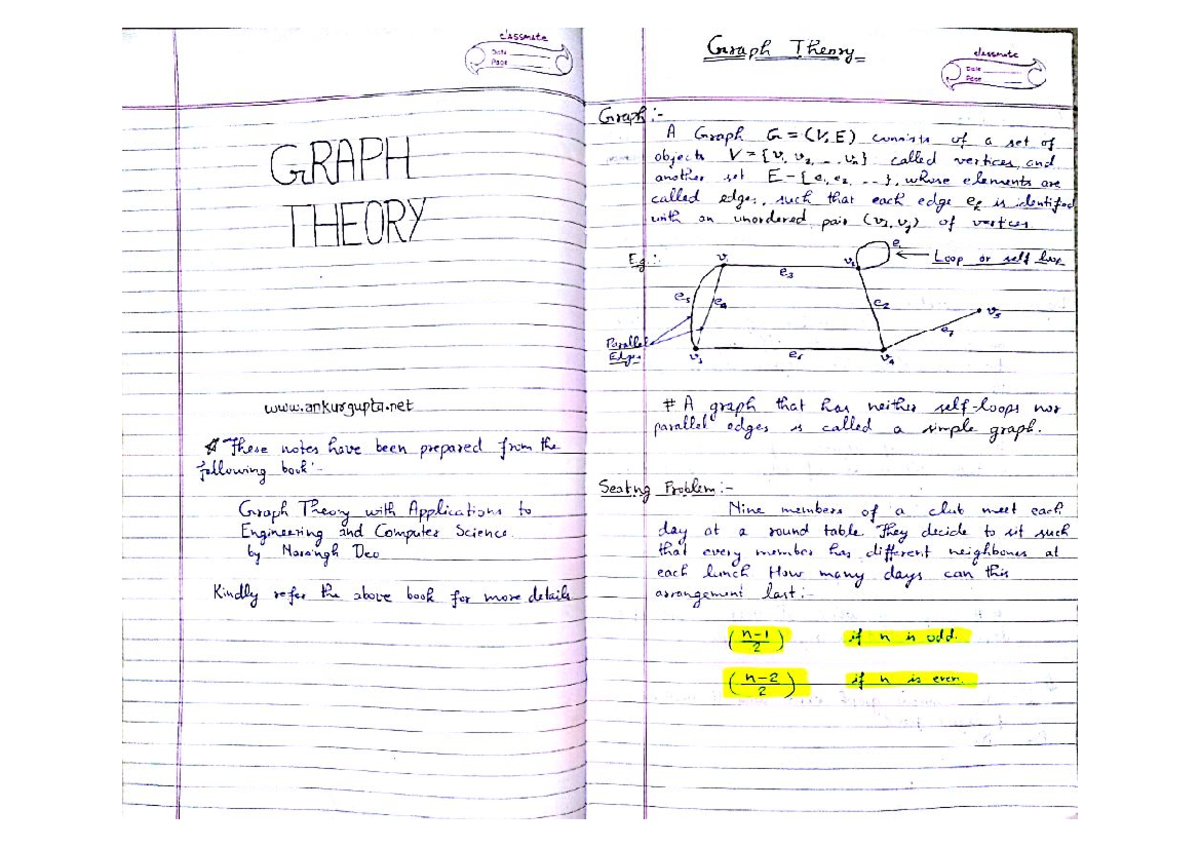 classmate
Date
Page
GRAPH
THEORY
www.ankurgupta.net
These notes have been prepared from the
following book:-
Graph Theory with Applications to
Engineering and Computer Science.
by Narsingh Deo
Kindly refer the above book for more details
Graph Theory
classmate
Date
Page
Graph:-
A Graph G = (V, E) consists of a set of
objects V = {v₁, v₂, ... vₙ} called vertices, and
another set E - {e₁, e₂, ...}, whose elements are
called edges, such that each edge eₖ is identified
with an unordered pair (vᵢ, vⱼ) of vertices
E.g.:-
v₁
e₃
v₂
e₁
Loop or self loop
e₅
e₄
e₂
v₅
e₇
Parallel
Edges
v₃
e₆
v₄
# A graph that has neither self-loops nor
parallel edges is called a simple graph.
Seating Problem:-
Nine members of a club meet each
day at a round table. They decide to sit such
that every member has different neighbours at
each lunch How many days can this
arrangement last:-
(n-1/2) if n is odd.
(n-2/2) if n is even.